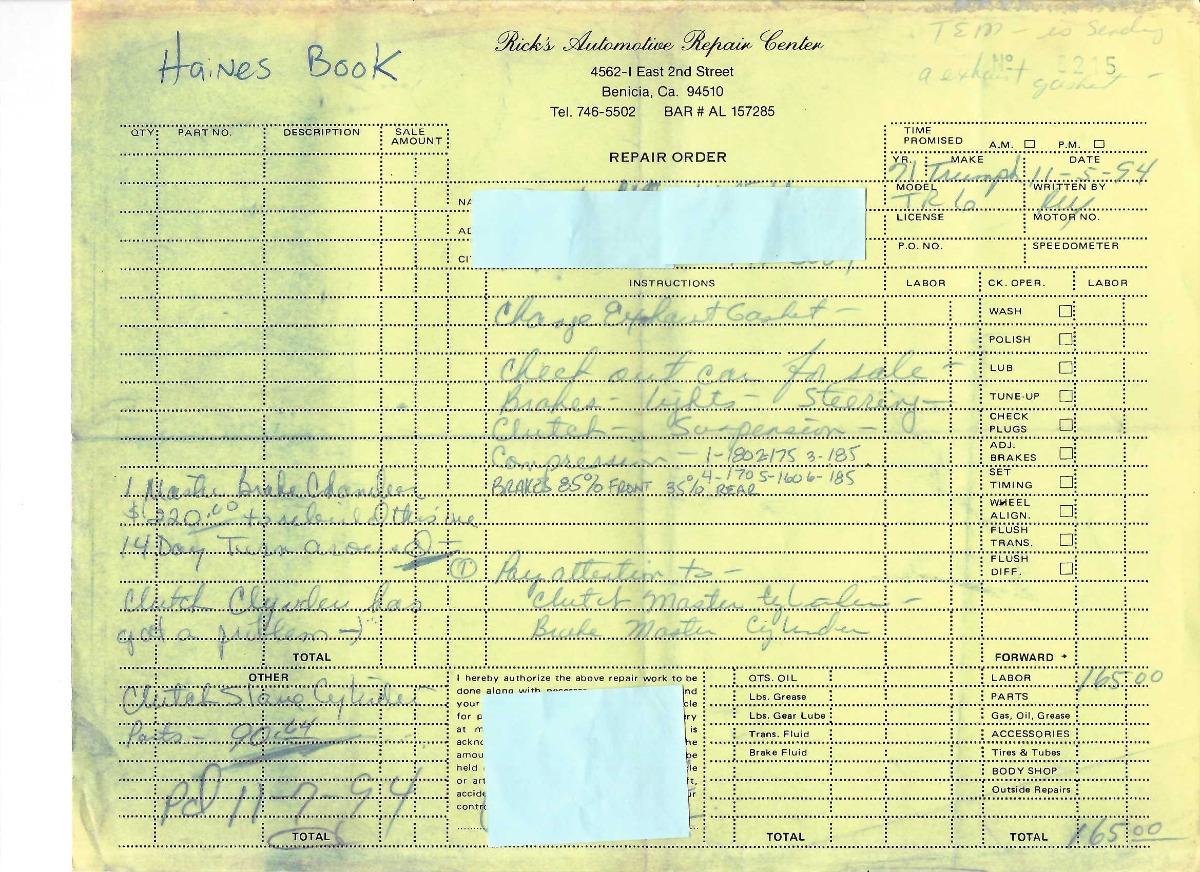 Haines Book
Rick's Automotive Repair Center
4562-I East 2nd Street
Benicia, Ca. 94510
Tel. 746-5502 BAR # AL 157285
TEM - is sending
a exhaust gasket -
Nº 5215
REPAIR ORDER
QTY. PART NO. DESCRIPTION SALE AMOUNT
TIME PROMISED A.M. P.M.
YR. MAKE DATE
71 Triumph 11-5-94
MODEL WRITTEN BY
TR6
LICENSE MOTOR NO.
P.O. NO. SPEEDOMETER
NA
AD
CI
INSTRUCTIONS LABOR CK. OPER. LABOR
Change Exhaust Gasket -
Check out car for sale -
Brakes - Lights - Steering -
Clutch - Suspension -
Compression - 1-180 2-175 3-185
4-170 5-160 6-185
BRAKES 85% FRONT 35% REAR
① Pay attention to -
Clutch Master Cylinder -
Brake Master Cylinder
WASH
POLISH
LUB
TUNE-UP
CHECK PLUGS
ADJ. BRAKES
SET TIMING
WHEEL ALIGN.
FLUSH TRANS.
FLUSH DIFF.
FORWARD
1 Master Brake
$220.00 to rebuild
14 Day Turn around
Clutch has
got a problem
TOTAL
OTHER
Clutch Slave Cylinder -
Parts - 90.64
Pd 11-7-94
TOTAL
I hereby authorize the above repair work to be
done along with necess nd
your cle
for p ry
at m is
ackno he
amou be
held le
or art ft,
accide ur
contr
QTS. OIL
Lbs. Grease
Lbs. Gear Lube
Trans. Fluid
Brake Fluid
TOTAL
LABOR 165 00
PARTS
Gas, Oil, Grease
ACCESSORIES
Tires & Tubes
BODY SHOP
Outside Repairs
TOTAL 165 00